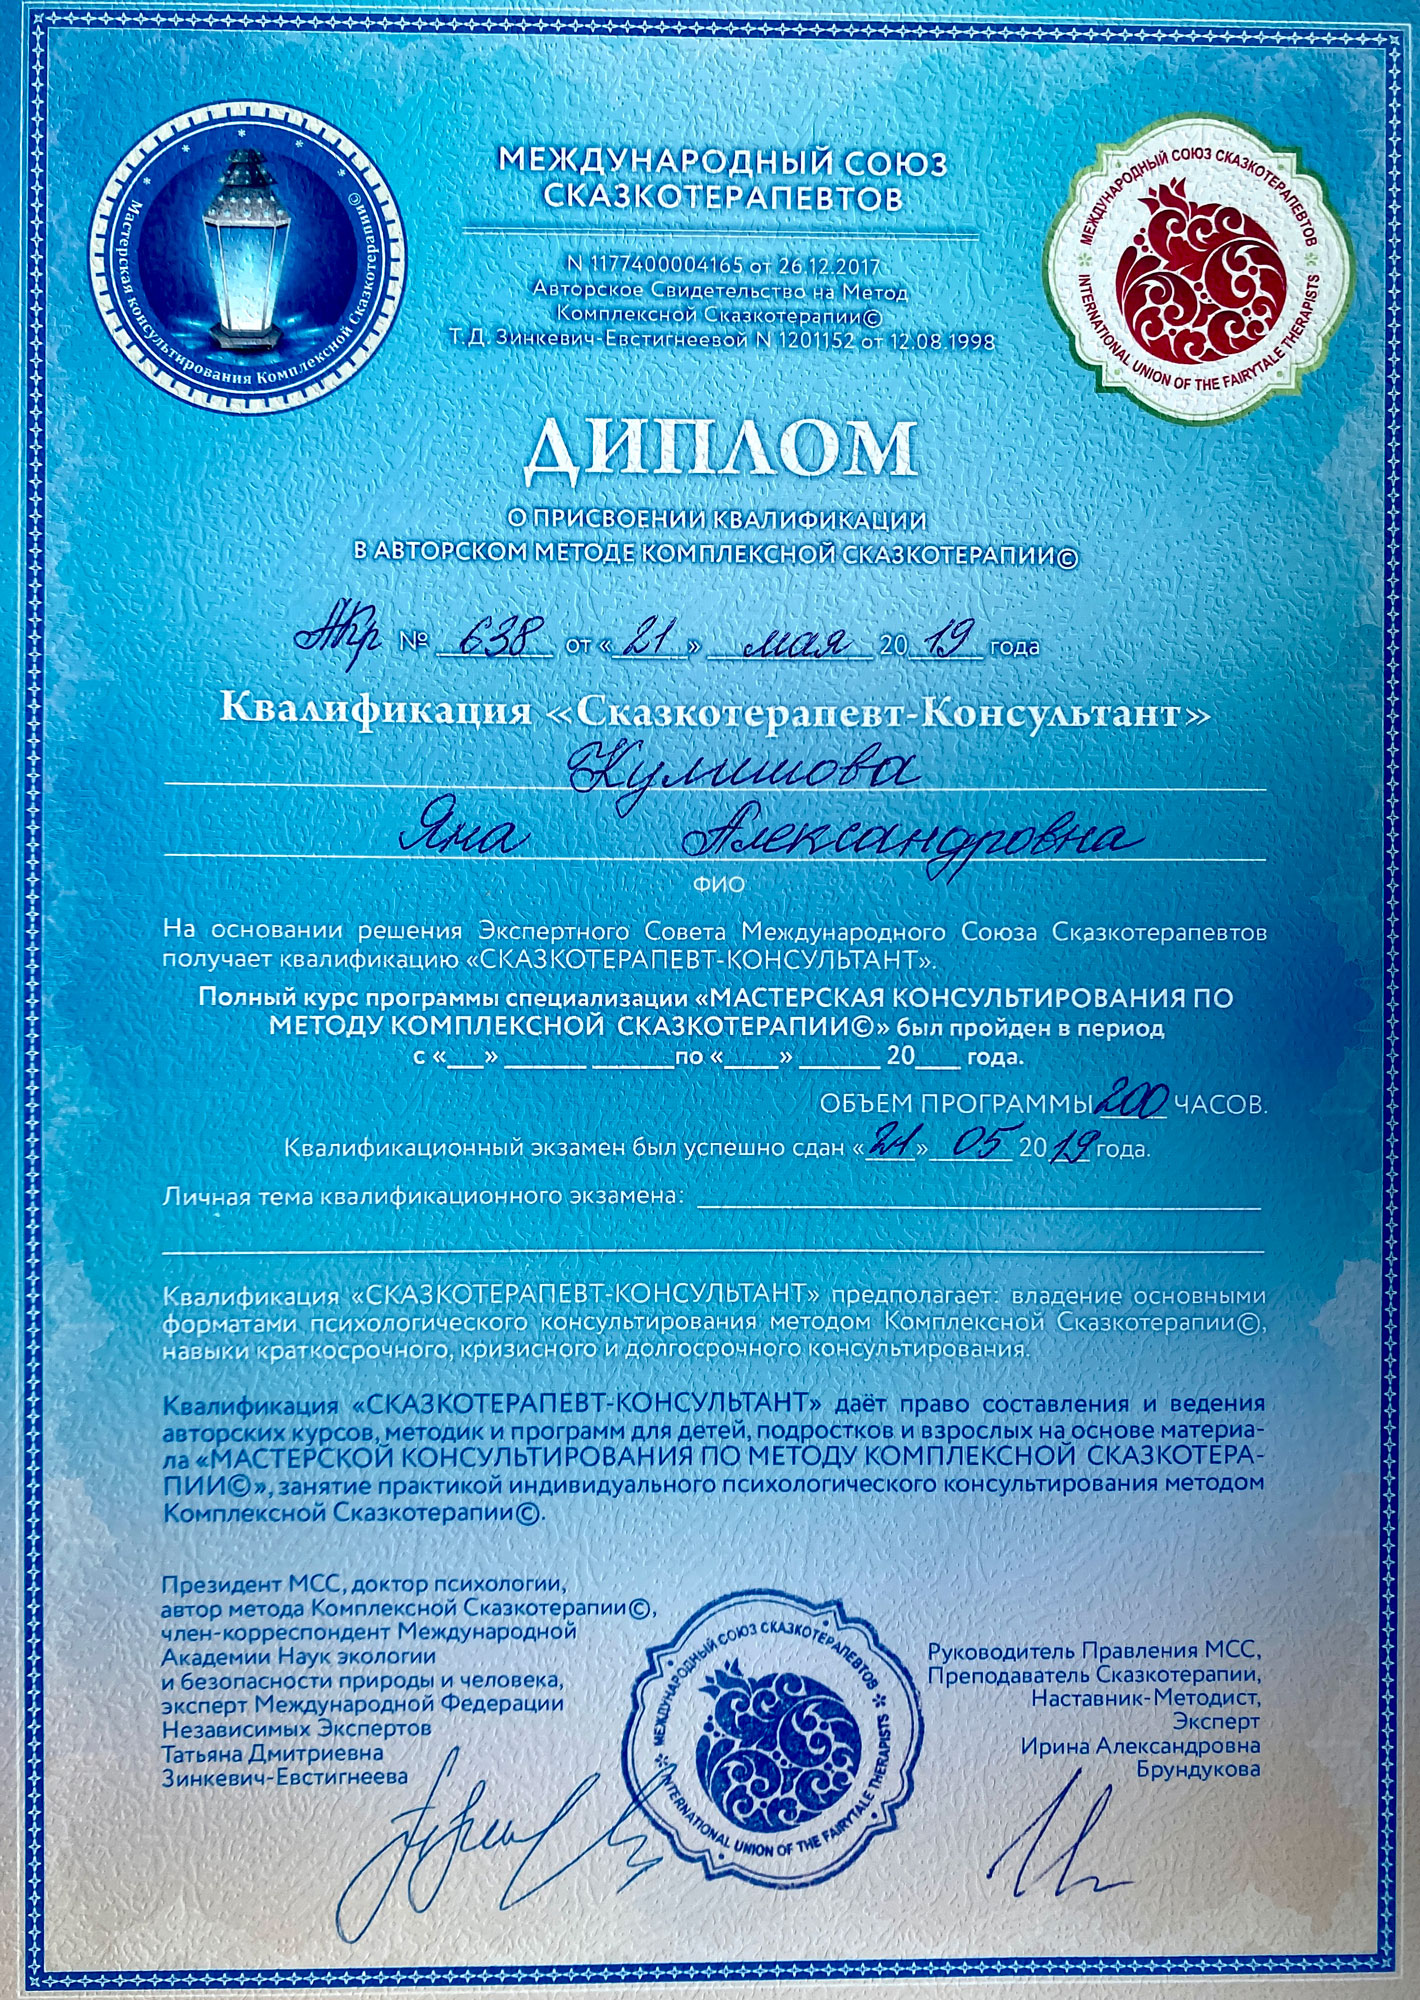 Мастерская консультирования Комплексной Сказкотерапии©
МЕЖДУНАРОДНЫЙ СОЮЗ
СКАЗКОТЕРАПЕВТОВ
МЕЖДУНАРОДНЫЙ СОЮЗ СКАЗКОТЕРАПЕВТОВ
INTERNATIONAL UNION OF THE FAIRYTALE THERAPISTS
N 1177400004165 от 26.12.2017
Авторское Свидетельство на Метод
Комплексной Сказкотерапии©
Т.Д. Зинкевич-Евстигнеевой N 1201152 от 12.08.1998
ДИПЛОМ
О ПРИСВОЕНИИ КВАЛИФИКАЦИИ
В АВТОРСКОМ МЕТОДЕ КОМПЛЕКСНОЙ СКАЗКОТЕРАПИИ©
№ 638 от «21» мая 2019 года
Квалификация «Сказкотерапевт-Консультант»
Кулишова
Яна Александровна
ФИО
На основании решения Экспертного Совета Международного Союза Сказкотерапевтов
получает квалификацию «СКАЗКОТЕРАПЕВТ-КОНСУЛЬТАНТ».
Полный курс программы специализации «МАСТЕРСКАЯ КОНСУЛЬТИРОВАНИЯ ПО
МЕТОДУ КОМПЛЕКСНОЙ СКАЗКОТЕРАПИИ©» был пройден в период
с «___» ______ ______по «____» ______ 20___ года.
ОБЪЕМ ПРОГРАММЫ 200 ЧАСОВ.
Квалификационный экзамен был успешно сдан «21» 05 2019 года.
Личная тема квалификационного экзамена:
Квалификация «СКАЗКОТЕРАПЕВТ-КОНСУЛЬТАНТ» предполагает: владение основными
форматами психологического консультирования методом Комплексной Сказкотерапии©,
навыки краткосрочного, кризисного и долгосрочного консультирования.
Квалификация «СКАЗКОТЕРАПЕВТ-КОНСУЛЬТАНТ» даёт право составления и ведения
авторских курсов, методик и программ для детей, подростков и взрослых на основе материа-
ла «МАСТЕРСКОЙ КОНСУЛЬТИРОВАНИЯ ПО МЕТОДУ КОМПЛЕКСНОЙ СКАЗКОТЕРА-
ПИИ©», занятие практикой индивидуального психологического консультирования методом
Комплексной Сказкотерапии©.
Президент МСС, доктор психологии,
автор метода Комплексной Сказкотерапии©,
член-корреспондент Международной
Академии Наук экологии
и безопасности природы и человека,
эксперт Международной Федерации
Независимых Экспертов
Татьяна Дмитриевна
Зинкевич-Евстигнеева
МЕЖДУНАРОДНЫЙ СОЮЗ СКАЗКОТЕРАПЕВТОВ
INTERNATIONAL UNION OF THE FAIRYTALE THERAPISTS
Руководитель Правления МСС,
Преподаватель Сказкотерапии,
Наставник-Методист,
Эксперт
Ирина Александровна
Брундукова